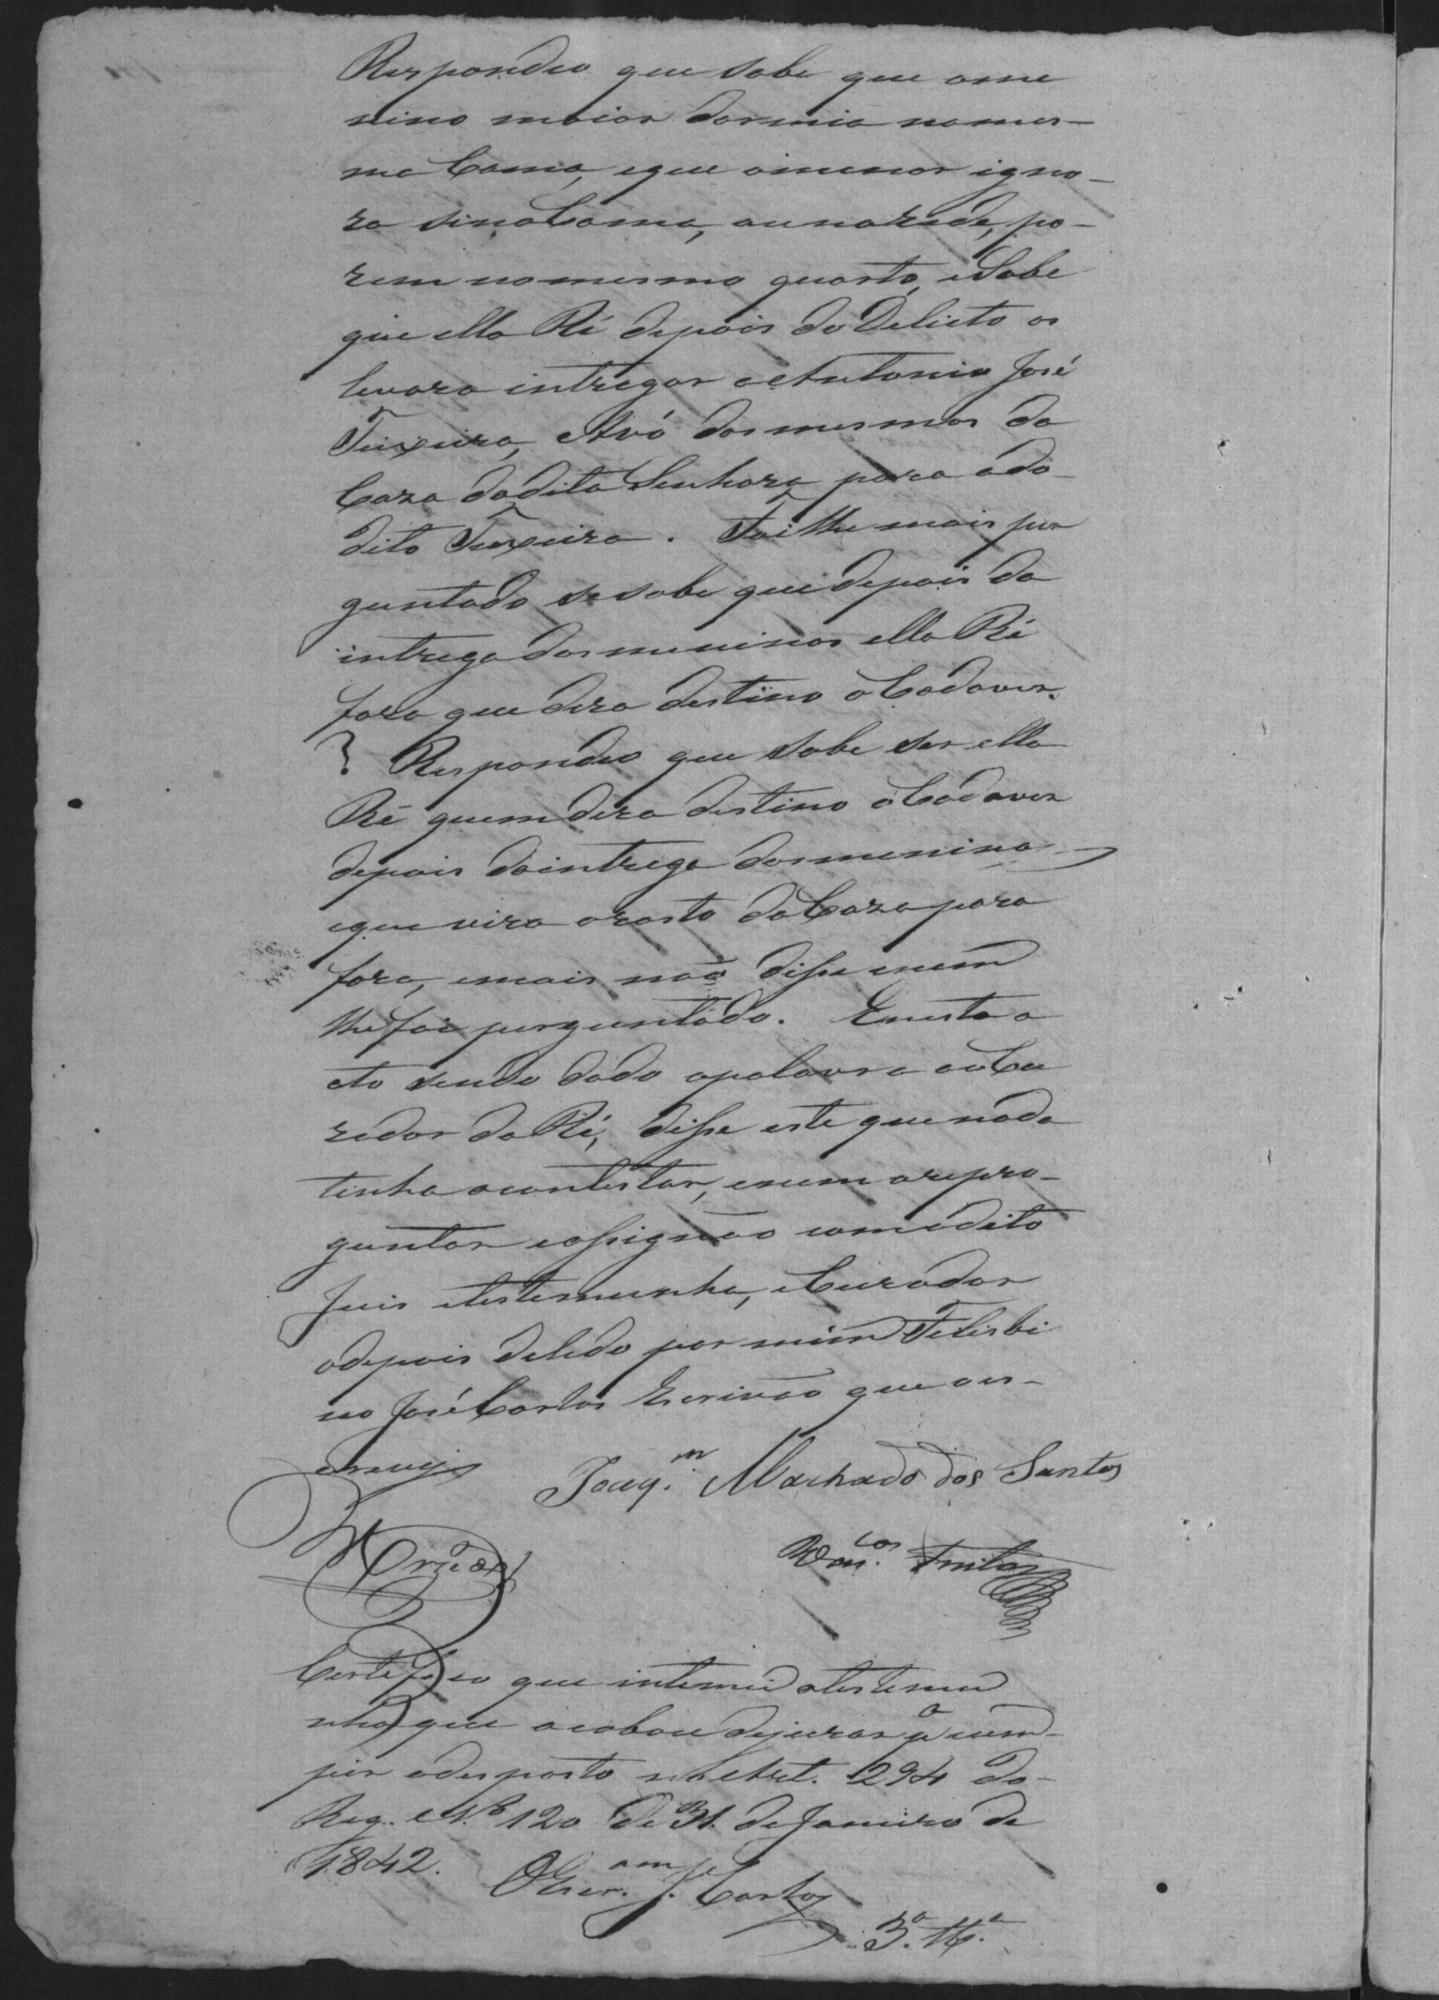 Respondeo que sabe que ome
nino maior dormia nomes-
ma Cama, eque omenor igno-
ra sinaCama, ounarede, po-
rem nomesmo quarto, esabe
que ella Ré depois do Delicto os
levara intregar aAntonio José
Teixeira, Avó dosmesmos da
Caza dadita Senhora para ado
dito Teixeira. Foi lhe mais per
guntado sesabe que depois da
intrega dosmeninos ella Ré
fora que dera destino oCadaver.
? Respondeo que sabe ser ella
Ré quem dera destino oCadaver
depois daintrega dosmeninos
eque vira orasto daCaza para
fora, emais não disse enem
lhe foi perguntado. Enesta a
cto sendo dado apalavra aoCu
rador da Ré, disse este que nada
tinha acontestar, enem arepro-
guntar eassignão com odito
Juis etestemunha, eCurador
odepois delido por mim Felisbi
no José Carlos Escrivão que oes-
crevy
Joaq.m Machado dos Santos
Dom.cos Freitas
Certefico que intimei atestemu
nha que acabou dejurar pa cum-
prir odesposto no Art. 294 do
Reg. N.o 120 de 31. de Janeiro de
1842. OEscr.am F. J. Carlos
3.a Tt.a